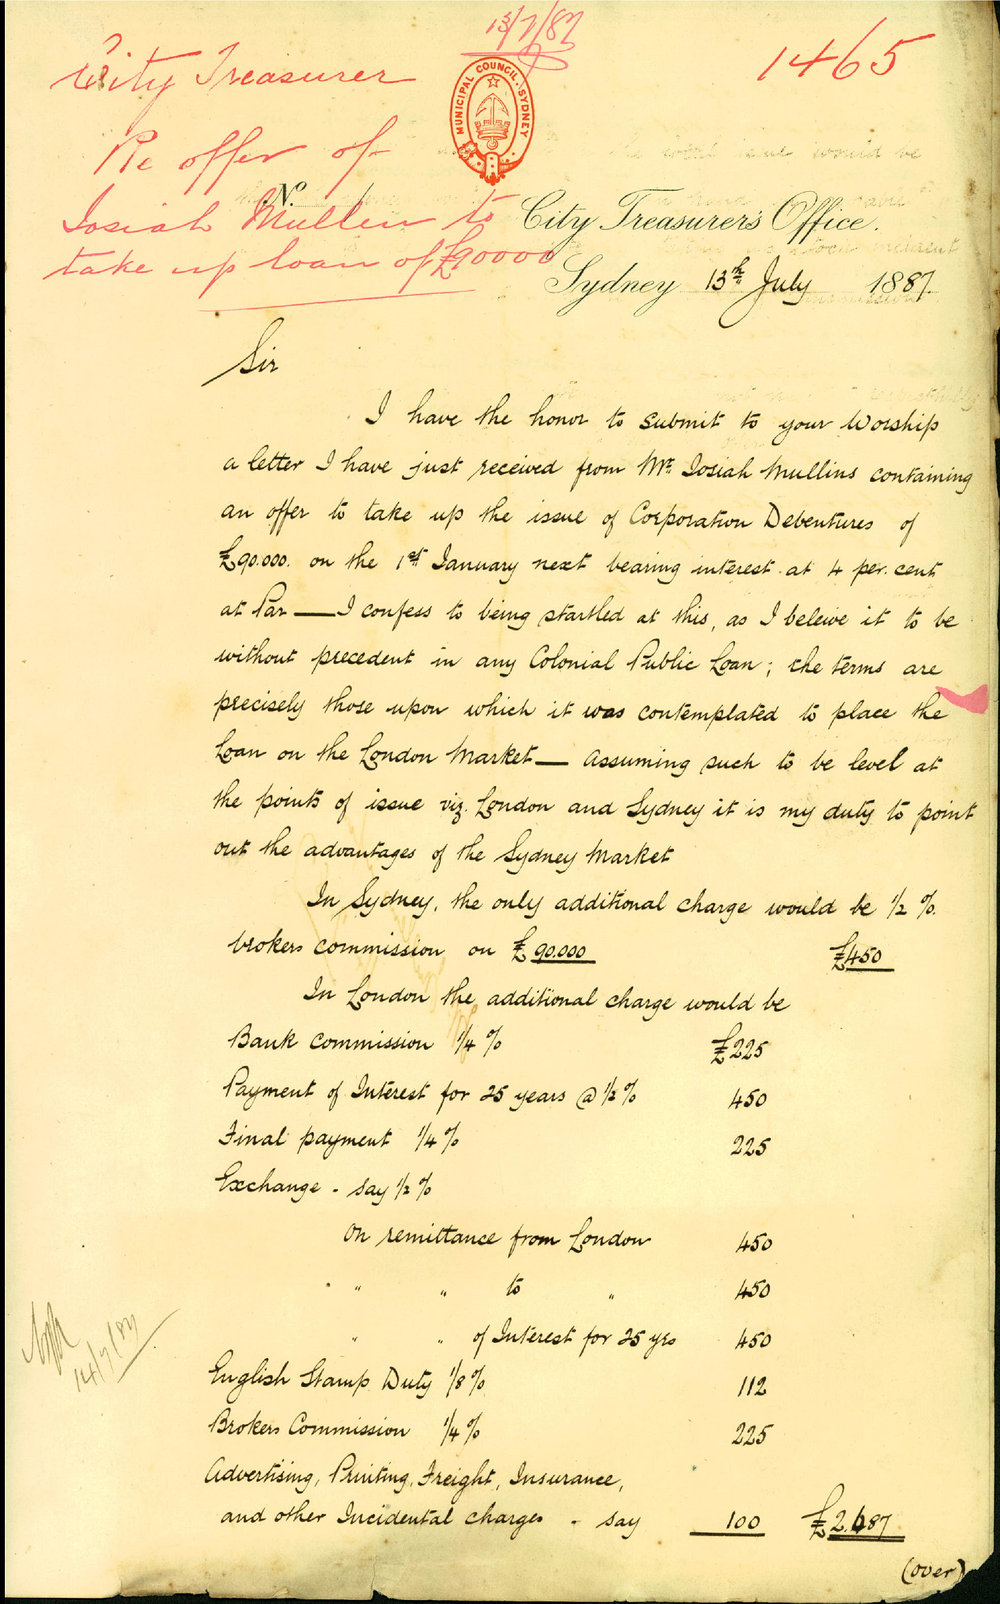 13/7/87
1465
City Treasurer
Re offer of
Josiah Mullen to
take up loan of £90000
MUNICIPAL COUNCIL SYDNEY
No.
City Treasurer's Office.
Sydney 13th July 1887.
Sir
I have the honor to submit to your Worship
a letter I have just received from Mr. Josiah Mullins containing
an offer to take up the issue of Corporation Debentures of
£90.000. on the 1st January next bearing interest at 4 per. cent
at Par — I confess to being startled at this, as I beleive it to be
without precedent in any Colonial Public Loan; the terms are
precisely those upon which it was contemplated to place the
Loan on the London Market — Assuming such to be level at
the points of issue viz. London and Sydney it is my duty to point
out the advantages of the Sydney Market
In Sydney, the only additional charge would be 1/2 %.
brokers commission on £90.000 £450
In London the additional charge would be
Bank Commission 1/4 % £225
Payment of Interest for 25 years @ 1/2 % 450
Final payment 1/4 % 225
Exchange - say 1/2 %
On remittance from London 450
" " to " 450
" " of Interest for 25 yrs 450
English Stamp Duty 1/8 % 112
Brokers Commission 1/4 % 225
Advertising, Printing, Freight, Insurance,
and other Incidental charges - say 100 £2,687
(over)
14/7/87